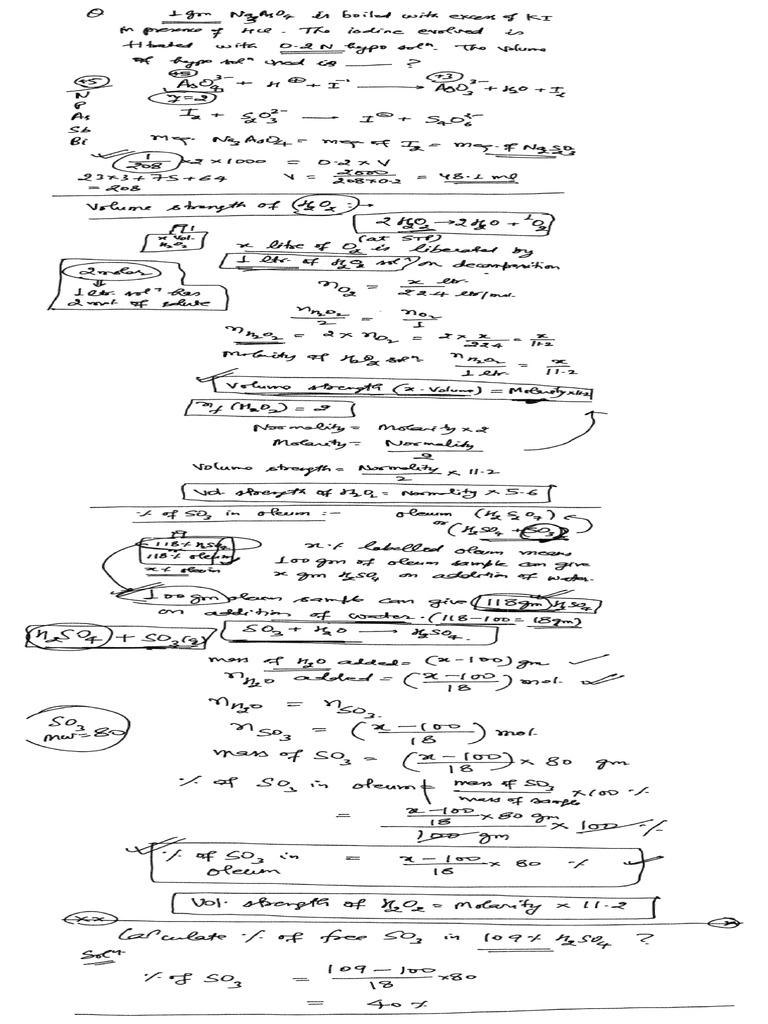 1 gm Na3AsO4 is boiled with excess of KI
in presence of HCl. The iodine evolved is
titrated with 0.2 N hypo solⁿ. The volume
of hypo solⁿ used is ____ ?
+5 N P As Sb Bi
+5 +3
AsO4³⁻ + H⊕ + I⁻ ⟶ AsO3³⁻ + H2O + I2
I2 + S2O3²⁻ ⟶ I⊖ + S4O6²⁻
meq. Na3AsO4 = meq of I2 = meq. of Na2S2O3
1/208 × 2 × 1000 = 0.2 × V
23×3 + 75 + 64 = 208
V = 2000/208×0.2 = 48.1 ml
Volume strength of H2O2 :→
2H2O2 → 2H2O + ¹O2
x Vol. H2O2
(at STP)
x litre of O2 is liberated by
1 ltr. of H2O2 solⁿ on decomposition
2 molar
⇓
1 ltr. solⁿ has
2 mol. of solute
nO2 = x ltr. / 22.4 ltr/mol.
nH2O2/2 = nO2/1
nH2O2 = 2 × nO2 = 2 × x/22.4 = x/11.2
Molarity of H2O2 solⁿ nH2O2/1 ltr. = x/11.2
Volume strength (x-Volume) = Molarity × 11.2
nf (H2O2) = 2
Normality = Molarity × 2
Molarity = Normality/2
Volume strength = Normality/2 × 11.2
Vol. strength of H2O2 = Normality × 5.6
% of SO3 in oleum :- oleum (H2S2O7)
or (H2SO4 + SO3)
118% H2SO4
118% oleum
x% olein
x % labelled oleum means
100 gm of oleum sample can give
x gm H2SO4 on addition of water.
100 gm oleum sample can give 118 gm H2SO4
on addition of water. (118-100 = 18 gm)
H2SO4 + SO3(g) SO3 + H2O ⟶ H2SO4.
mass of H2O added = (x-100) gm
nH2O added = (x-100/18) mol.
nH2O = nSO3.
SO3
mw = 80
nSO3 = (x-100/18) mol.
mass of SO3 = (x-100/18) × 80 gm
% of SO3 in oleum = mass of SO3/mass of sample × 100 %
= x-100/18 × 80 gm / 100 gm × 100 %
% of SO3 in oleum = x-100/18 × 80 %
Vol. strength of H2O2 = Molarity × 11.2
x-x
Calculate % of free SO3 in 109% H2SO4 ?
Solⁿ
% of SO3 = 109-100/18 × 80
= 40%